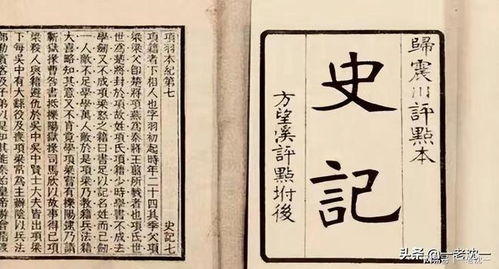 歸震川評點本
史記
方望溪評點坿後
項羽本紀第七
史記七
項籍者下相人也字羽初起時年二十四其季父項
梁梁父即楚將項燕為秦將王翦所戮者也項氏世
世為楚將封於項故姓項氏項籍少時學書不成去
學劍又不成項梁怒之籍曰書足以記名姓而已劍
一人敵不足學學萬人敵於是項梁乃教籍兵法籍
大喜略知其意又不肯竟學項梁嘗有櫟陽逮乃請
蘄獄掾曹咎書抵櫟陽獄掾司馬欣以故事得已項
梁殺人與籍避仇於吳中吳中賢士大夫皆出項梁
下每吳中有大繇役及喪項梁常為主辦陰以兵法
部勒賓客及子弟以是知其能秦始皇帝游會稽
头条 @一老沈一